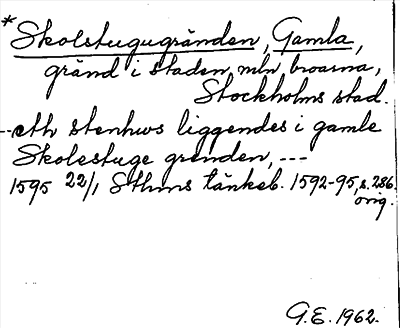 * Skolstugugränden, Gamla,
gränd i staden mln broarna,
Stockholms stad.
--eth stenhws liggendes i gamle
Skolestuge grenden, ---
1595 22/1 Sthms tänkeb. 1592-95, s. 286.
orig.
G.E. 1962.